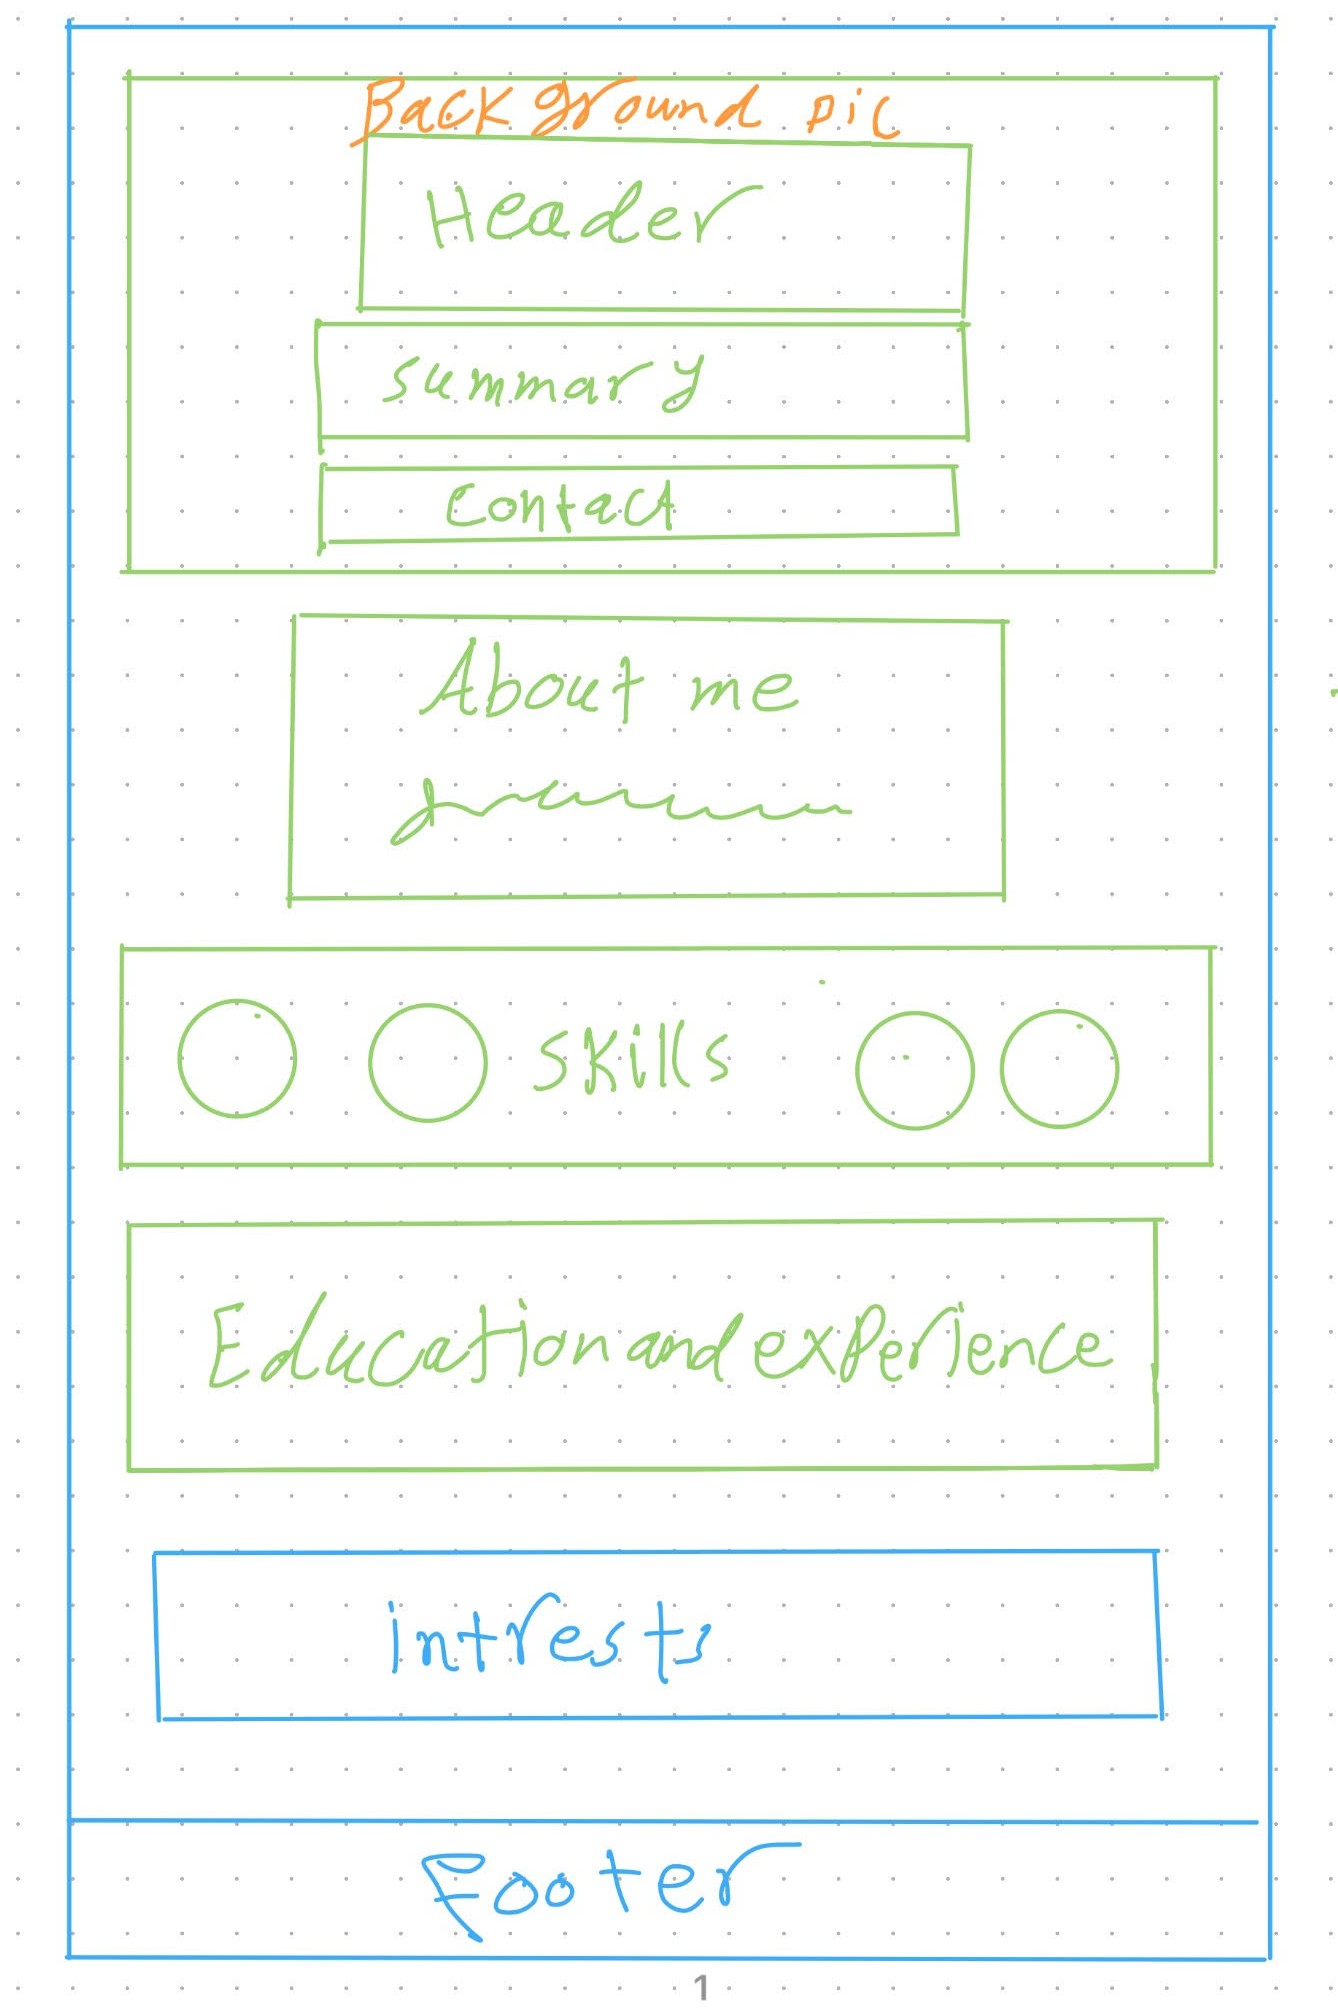 Background pic
Header
summary
Contact
About me
skills
Education and experience
intrests
Footer
1